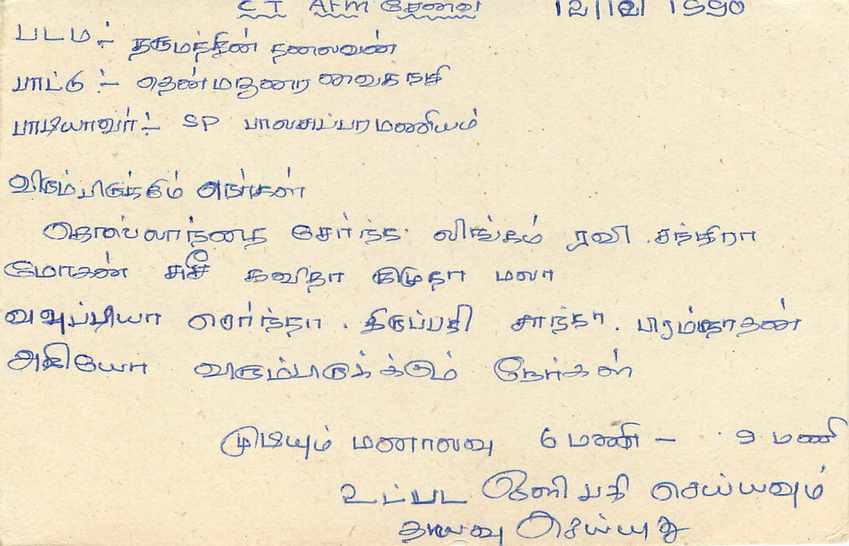 CT AFM சேவை 12/12/1990
படம் :- தருமத்தின் தலைவன்
பாட்டு :- தென்மதுரை வைகநதி
பாடியாவர் :- SP பாலசுப்பரமணியம்
விரும்பிகுக்கும் அநர்கள்
சேர்ந்த லிங்கம் ரவி சந்திரா
மோகன் சுசீ கவிதா குமுதா மலா
வவுப்பியா சேர்ந்தா . திருப்பதி சாந்தா . பிரம்நாதன்
அகியோ விரும்படுக்க்கும் நேர்கள்
முடியும் மணாலவு 6 மணி - 9 மணி
உட்பட ஒளி பதி செய்யவும்
தயவு செய்யது